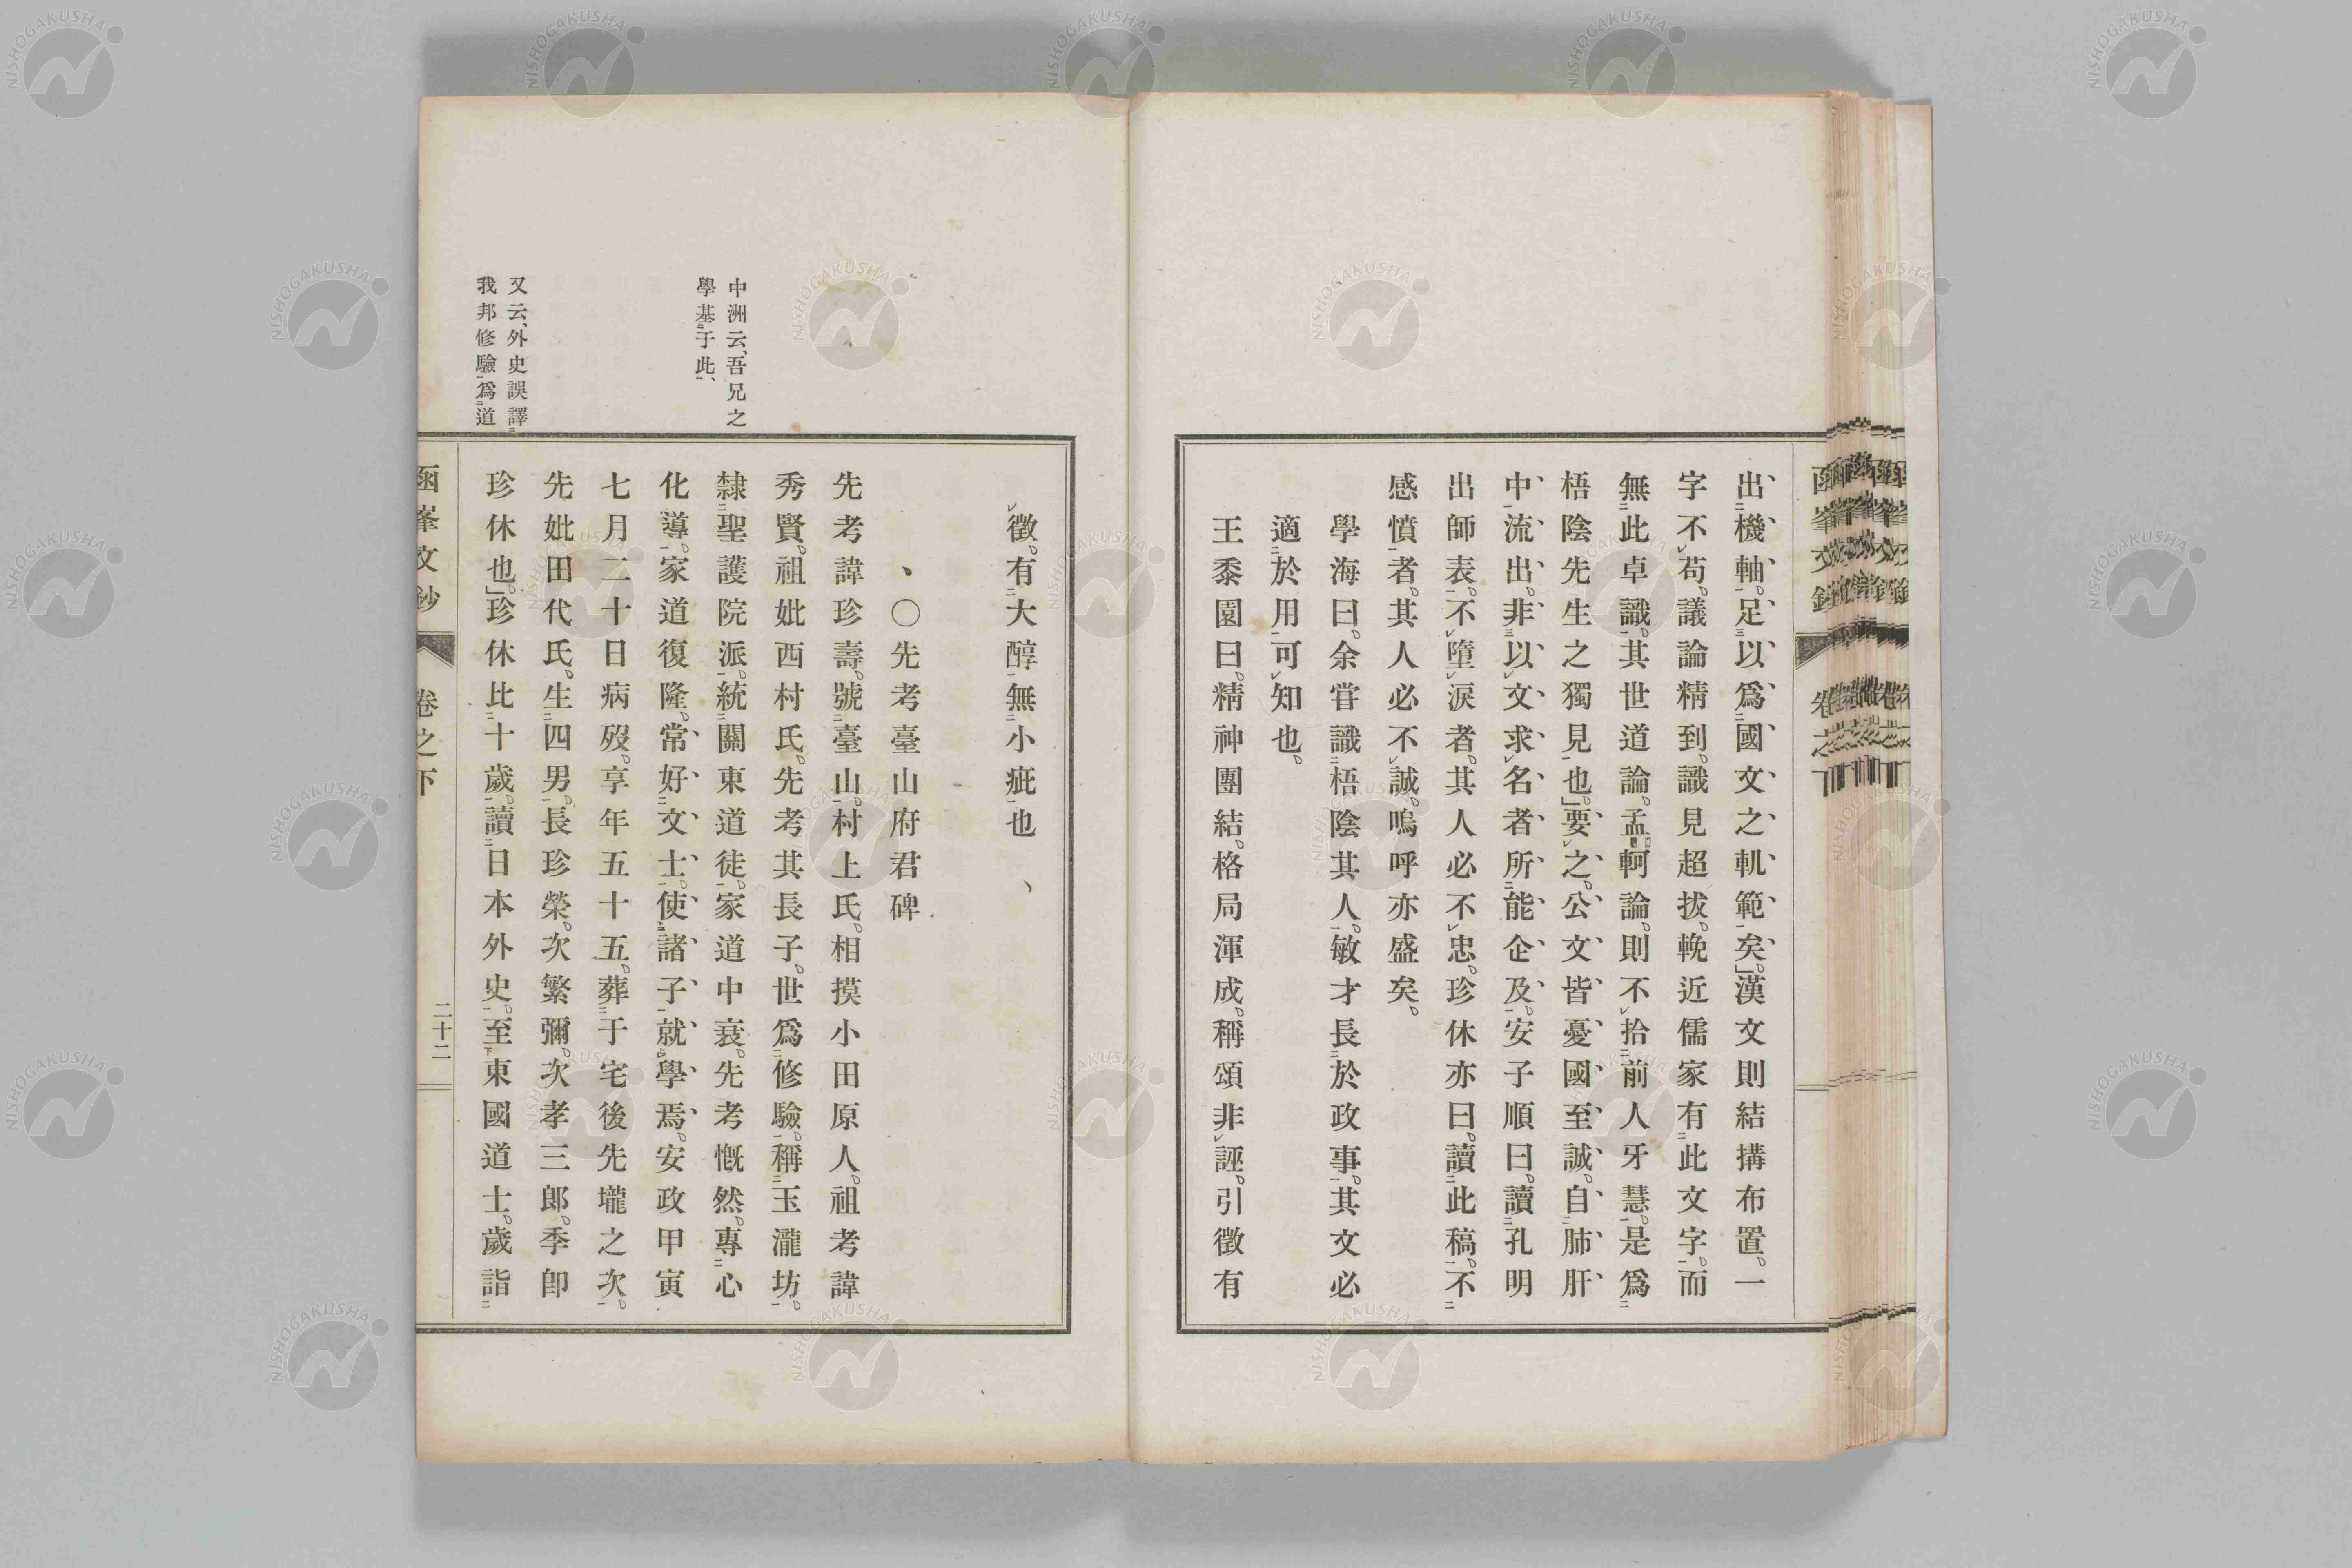 出機軸足以爲國文之軌範矣」漢文則結搆布置。一
字不苟。議論精到。識見超拔。輓近儒家有此文字。而
無此卓識。其世道論。孟軻論。則不拾前人牙慧。是爲
梧陰先生之獨見也」要之。公文皆憂國至誠。自肺肝
中流出。非以文求名者所能企及。安子順曰。讀孔明
出師表。不墮淚者。其人必不忠。珍休亦曰。讀此稿。不
感憤者。其人必不誠。嗚呼亦盛矣。
學海曰。余甞識梧陰其人。敏才長於政事。其文必
適於用可知也。
王黍園曰。精神團結。格局渾成。稱頌非誣。引徵有
徵。有大醇無小疵也
、〇先考臺山府君碑
先考諱珍壽。號臺山。村上氏。相摸小田原人。祖考諱
秀賢。祖妣西村氏。先考其長子。世爲修驗。稱玉瀧坊。
隸聖護院派。統關東道徒。家道中衰。先考慨然。專心
化導。家道復隆。常好文士。使諸子就學焉。安政甲寅
七月二十日病歿。享年五十五。葬于宅後先壠之次。
先妣田代氏。生四男。長珍榮。次繁彌。次孝三郎。季卽
珍休也」珍休比十歲。讀日本外史。至東國道士。歲詣
中洲云、吾兄之
學基于此、
又云、外史誤譯
我邦修驗爲道
函峯文鈔
卷之下
二十二
函峯文鈔
卷之下